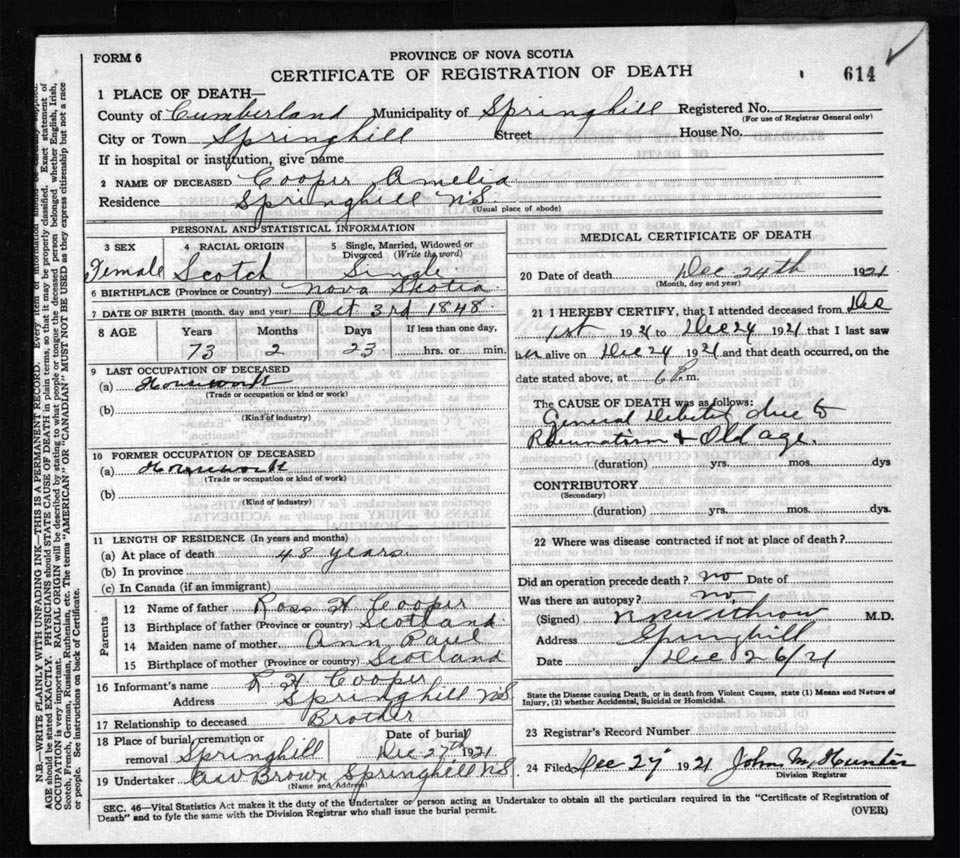 FORM 6
PROVINCE OF NOVA SCOTIA
CERTIFICATE OF REGISTRATION OF DEATH
614
1 PLACE OF DEATH—
County of Cumberland Municipality of Springhill Registered No.
(For use of Registrar General only)
City or Town Springhill Street House No.
If in hospital or institution, give name
2 NAME OF DECEASED Cooper Amelia
Residence Springhill N.S.
(Usual place of abode)
PERSONAL AND STATISTICAL INFORMATION
3 SEX 4 RACIAL ORIGIN 5 Single, Married, Widowed or Divorced (Write the word)
Female Scotch Single
6 BIRTHPLACE (Province or Country) Nova Scotia
7 DATE OF BIRTH (month, day and year) Oct 3rd 1848
8 AGE Years Months Days If less than one day,
73 2 23 hrs. or min.
9 LAST OCCUPATION OF DECEASED
(a) Housework
(Trade or occupation or kind or work)
(b)
(Kind of industry)
10 FORMER OCCUPATION OF DECEASED
(a) Housework
(Trade or occupation or kind or work)
(b)
(Kind of industry)
11 LENGTH OF RESIDENCE (In years and months)
(a) At place of death 48 years
(b) In province
(c) In Canada (if an immigrant)
Parents
12 Name of father Ross H Cooper
13 Birthplace of father (Province or country) Scotland
14 Maiden name of mother Ann Paul
15 Birthplace of mother (Province or country) Scotland
16 Informant's name R H Cooper
Address Springhill NS
17 Relationship to deceased Brother
18 Place of burial, cremation or removal Springhill Date of burial Dec 27th 1921
19 Undertaker Brown Springhill NS
(Name and Address)
MEDICAL CERTIFICATE OF DEATH
20 Date of death Dec 24th 1921
(Month, day and year)
21 I HEREBY CERTIFY, that I attended deceased from Dec
1st 1921 to Dec 24 1921 that I last saw
her alive on Dec 24 1921 and that death occurred, on the
date stated above, at 6 P. m.
The CAUSE OF DEATH was as follows:
General Debility due to
Rheumatism & Old age.
(duration) yrs. mos. dys
CONTRIBUTORY
(Secondary)
(duration) yrs. mos. dys.
22 Where was disease contracted if not at place of death?
Did an operation precede death? no Date of
Was there an autopsy? no
(Signed) M.D.
Address Springhill
Date Dec 26/21
State the Disease causing Death, or in death from Violent Causes, state (1) Means and Nature of
Injury, (2) whether Accidental, Suicidal or Homicidal.
23 Registrar's Record Number
24 Filed Dec 27 1921 John M Hunter
Division Registrar
SEC. 46—Vital Statistics Act makes it the duty of the Undertaker or person acting as Undertaker to obtain all the particulars required in the "Certificate of Registration of
Death" and to fyle the same with the Division Registrar who shall issue the burial permit.
(OVER)
N.B.—WRITE PLAINLY WITH UNFADING INK—THIS IS A PERMANENT RECORD. Every item of information should
AGE should be stated EXACTLY. PHYSICIANS should STATE CAUSE OF DEATH in plain terms, so that it may be properly classified. Exact statement of
OCCUPATION is very important. RACIAL ORIGIN will be described by stating to what people or tongue the deceased person belonged whether English, Irish,
Scotch, French, German, Russian, Ruthenian, etc. The terms "AMERICAN" OR "CANADIAN" MUST NOT BE USED as they express citizenship but not a race
or people. See instructions on back of Certificate.